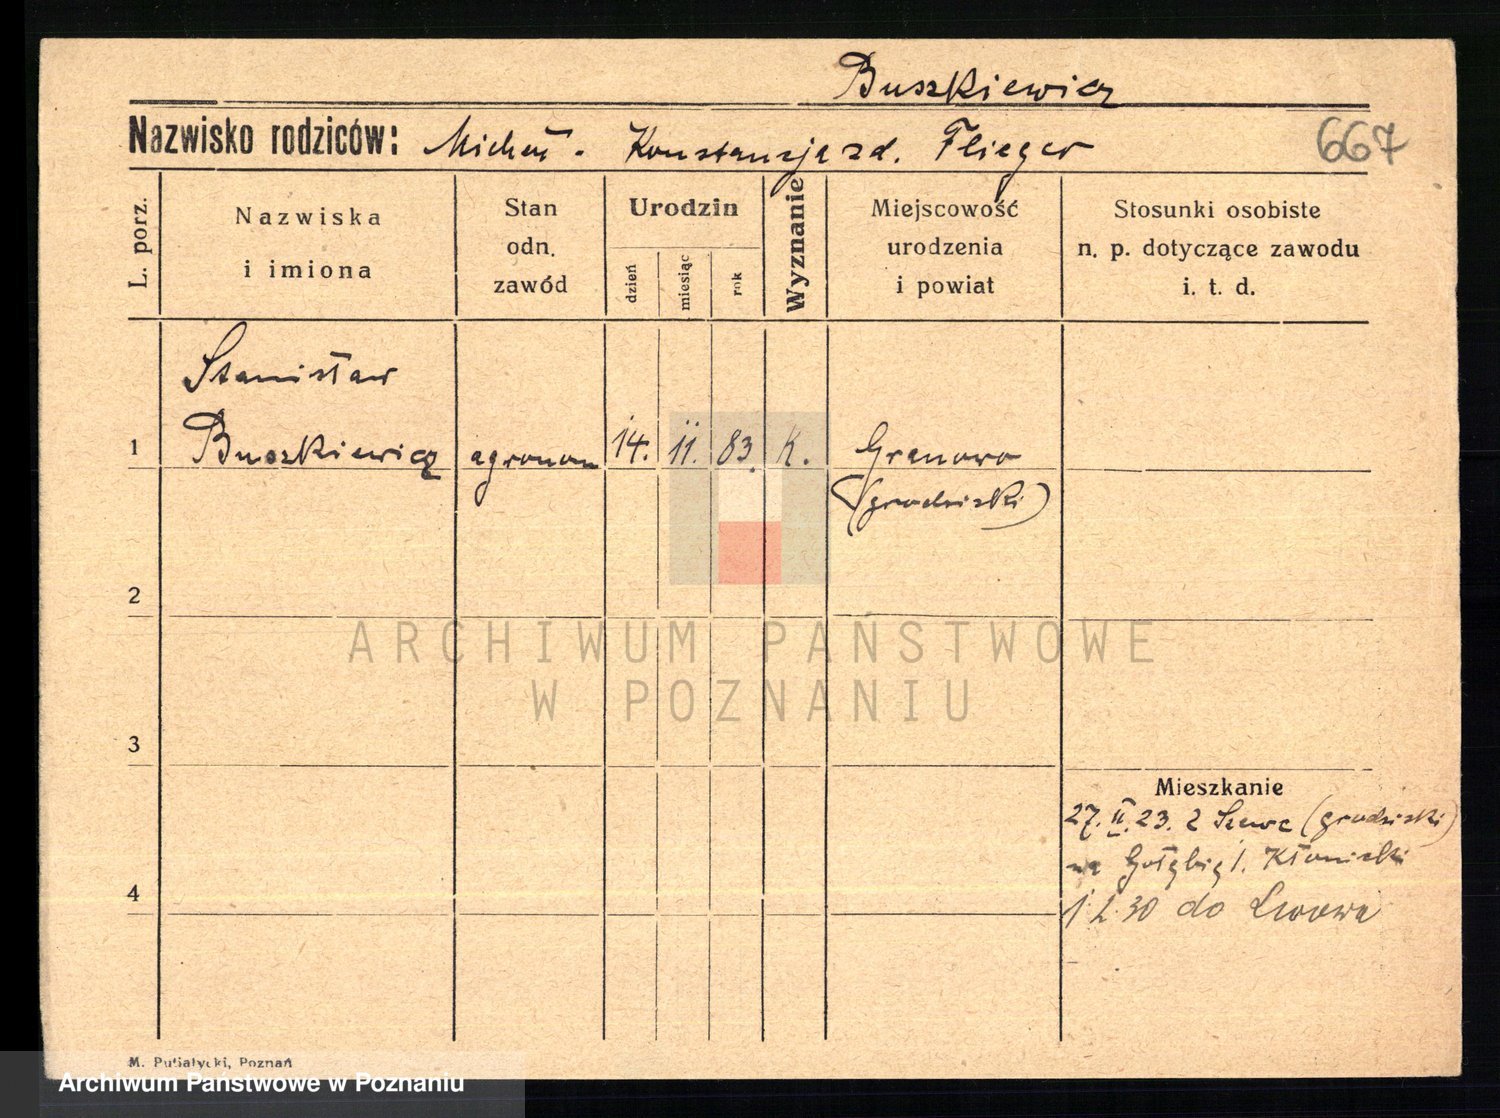 Buszkiewicz
Nazwisko rodziców: Michał. Konstancja zd. Flieger
667
L. porz.
Nazwiska
i imiona
Stan
odn.
zawód
Urodzin
dzień
miesiąc
rok
Wyznanie
Miejscowość
urodzenia
i powiat
Stosunki osobiste
n. p. dotyczące zawodu
i. t. d.
Stanisław
1 Buszkiewicz agronom 14. 11. 83. K. Granowo
(grodziski)
2
ARCHIWUM PAŃSTWOWE
W POZNANIU
3
Mieszkanie
27. II. 23. z (grodziski)
na 1. Kłonicki
4
1.2.30 do Lwowa
M. Putiatycki, Poznań
Archiwum Państwowe w Poznaniu